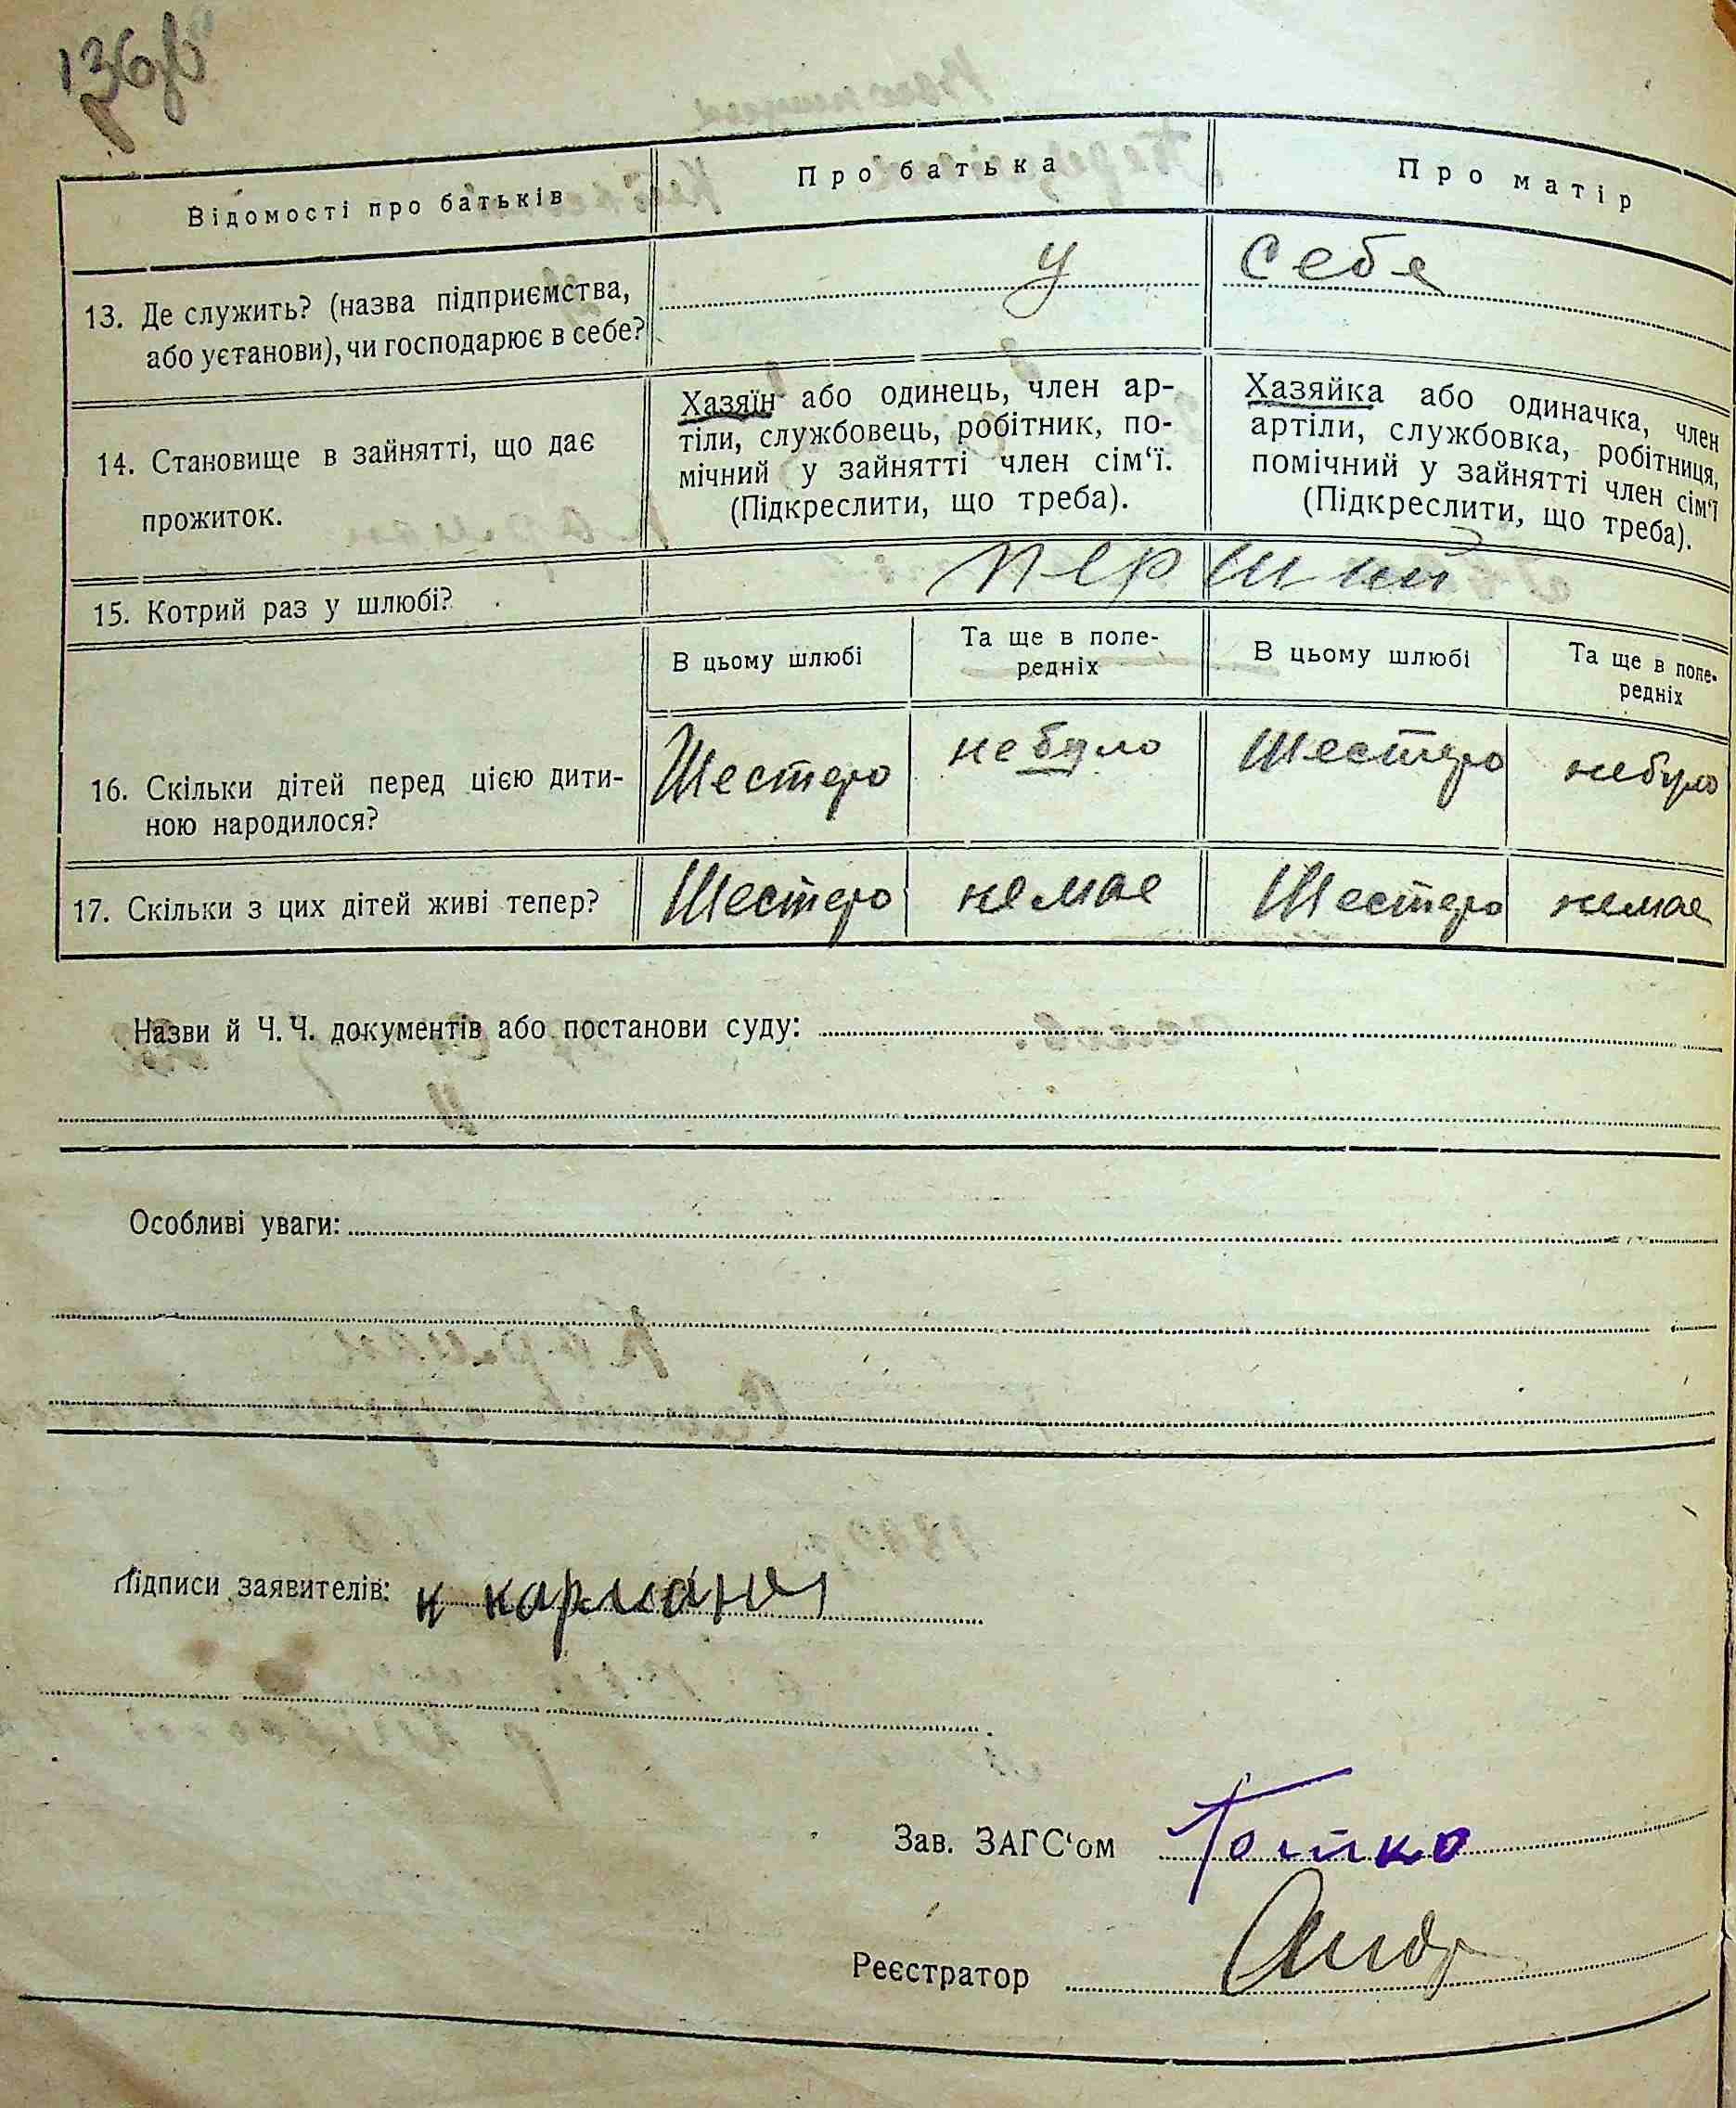 136
Відомості про батьків
Про батька
Про матір
13. Де служить? (назва підприємства,
або установи), чи господарює в себе?
у себя
14. Становище в зайнятті, що дає
прожиток.
Хазяїн або одинець, член ар-
тіли, службовець, робітник, по-
мічний у зайнятті член сім‘ї.
(Підкреслити, що треба).
Хазяйка або одиначка, член
артіли, службовка, робітниця,
помічний у зайнятті член сім‘ї
(Підкреслити, що треба).
15. Котрий раз у шлюбі?
перший
В цьому шлюбі
Та ще в попе-
редніх
В цьому шлюбі
Та ще в попе-
редніх
16. Скільки дітей перед цією дити-
ною народилося?
Шестеро
не було
Шестеро
не було
17. Скільки з цих дітей живі тепер?
Шестеро
немае
Шестеро
немае
Назви й Ч. Ч. документів або постанови суду:
Особливі уваги:
Підписи заявителів:
Зав. ЗАГС‘ом
Реєстратор